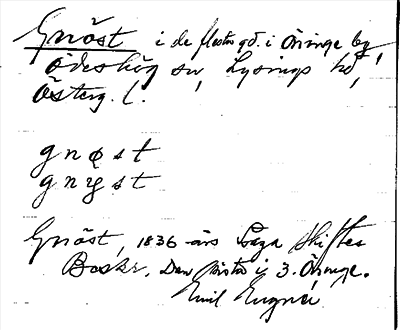 Gnöst i de flesta gd. i Öninge by,
Ödeshög sn, Lysings hd,
Österg. l.
gnøst
gnyst
Gnöst, 1836 års Laga Skiftes
Beskr. Den första i 3. Öninge.
Emil